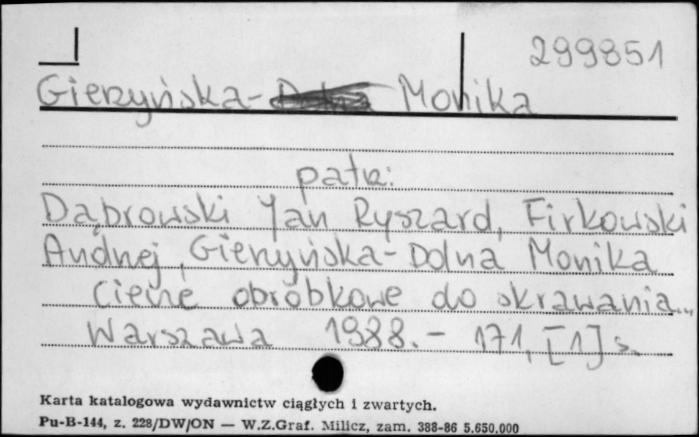 299851
Gierzyńska- Monika
patrz:
Dąbrowski Jan Ryszard, Firkowski
Andrzej, Gierzyńska-Dolna Monika
Ciecze obróbkowe do skrawania...
Warszawa 1988. - 171, [1] s.
Karta katalogowa wydawnictw ciągłych i zwartych.
Pu-B-144, z. 228/DW/ON — W.Z.Graf. Milicz, zam. 388-86 5.650.000